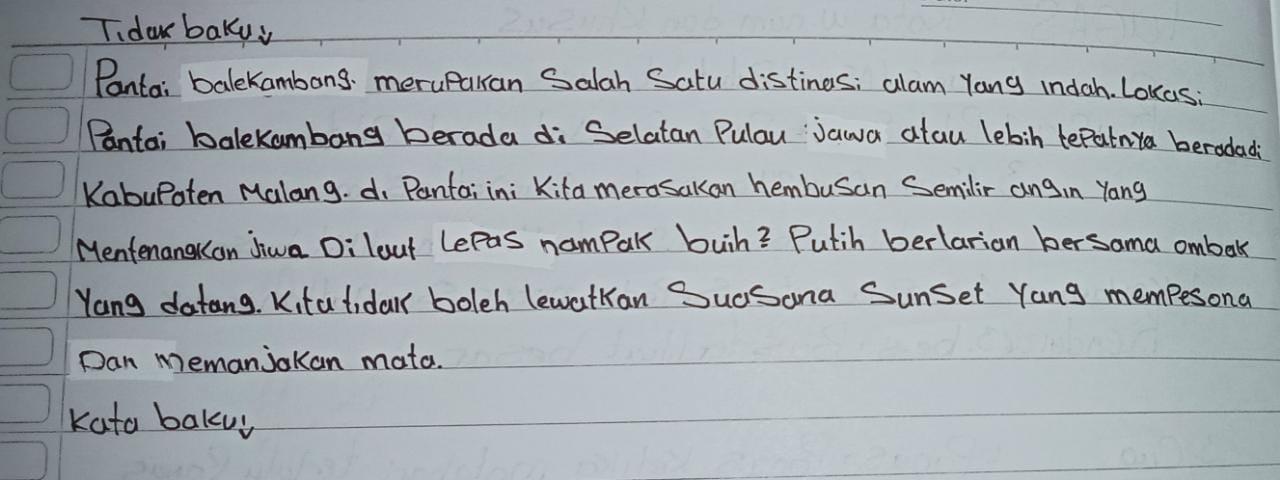 Tidak baku ↓
Pantai balekambang. merupakan Salah Satu distinasi alam Yang indah. Lokasi
Pantai balekambang berada di Selatan Pulau jawa atau lebih tepatnya beradadi
Kabupaten Malang. di Pantai ini Kita merasakan hembusan Semilir angin Yang
Mentenangkan jiwa Di laut Lepas nampak buih? Putih berlarian bersama ombak
Yang datang. Kita tidak boleh lewatkan Suasana Sunset Yang mempesona
Dan Memanjakan mata.
Kata baku: ↓